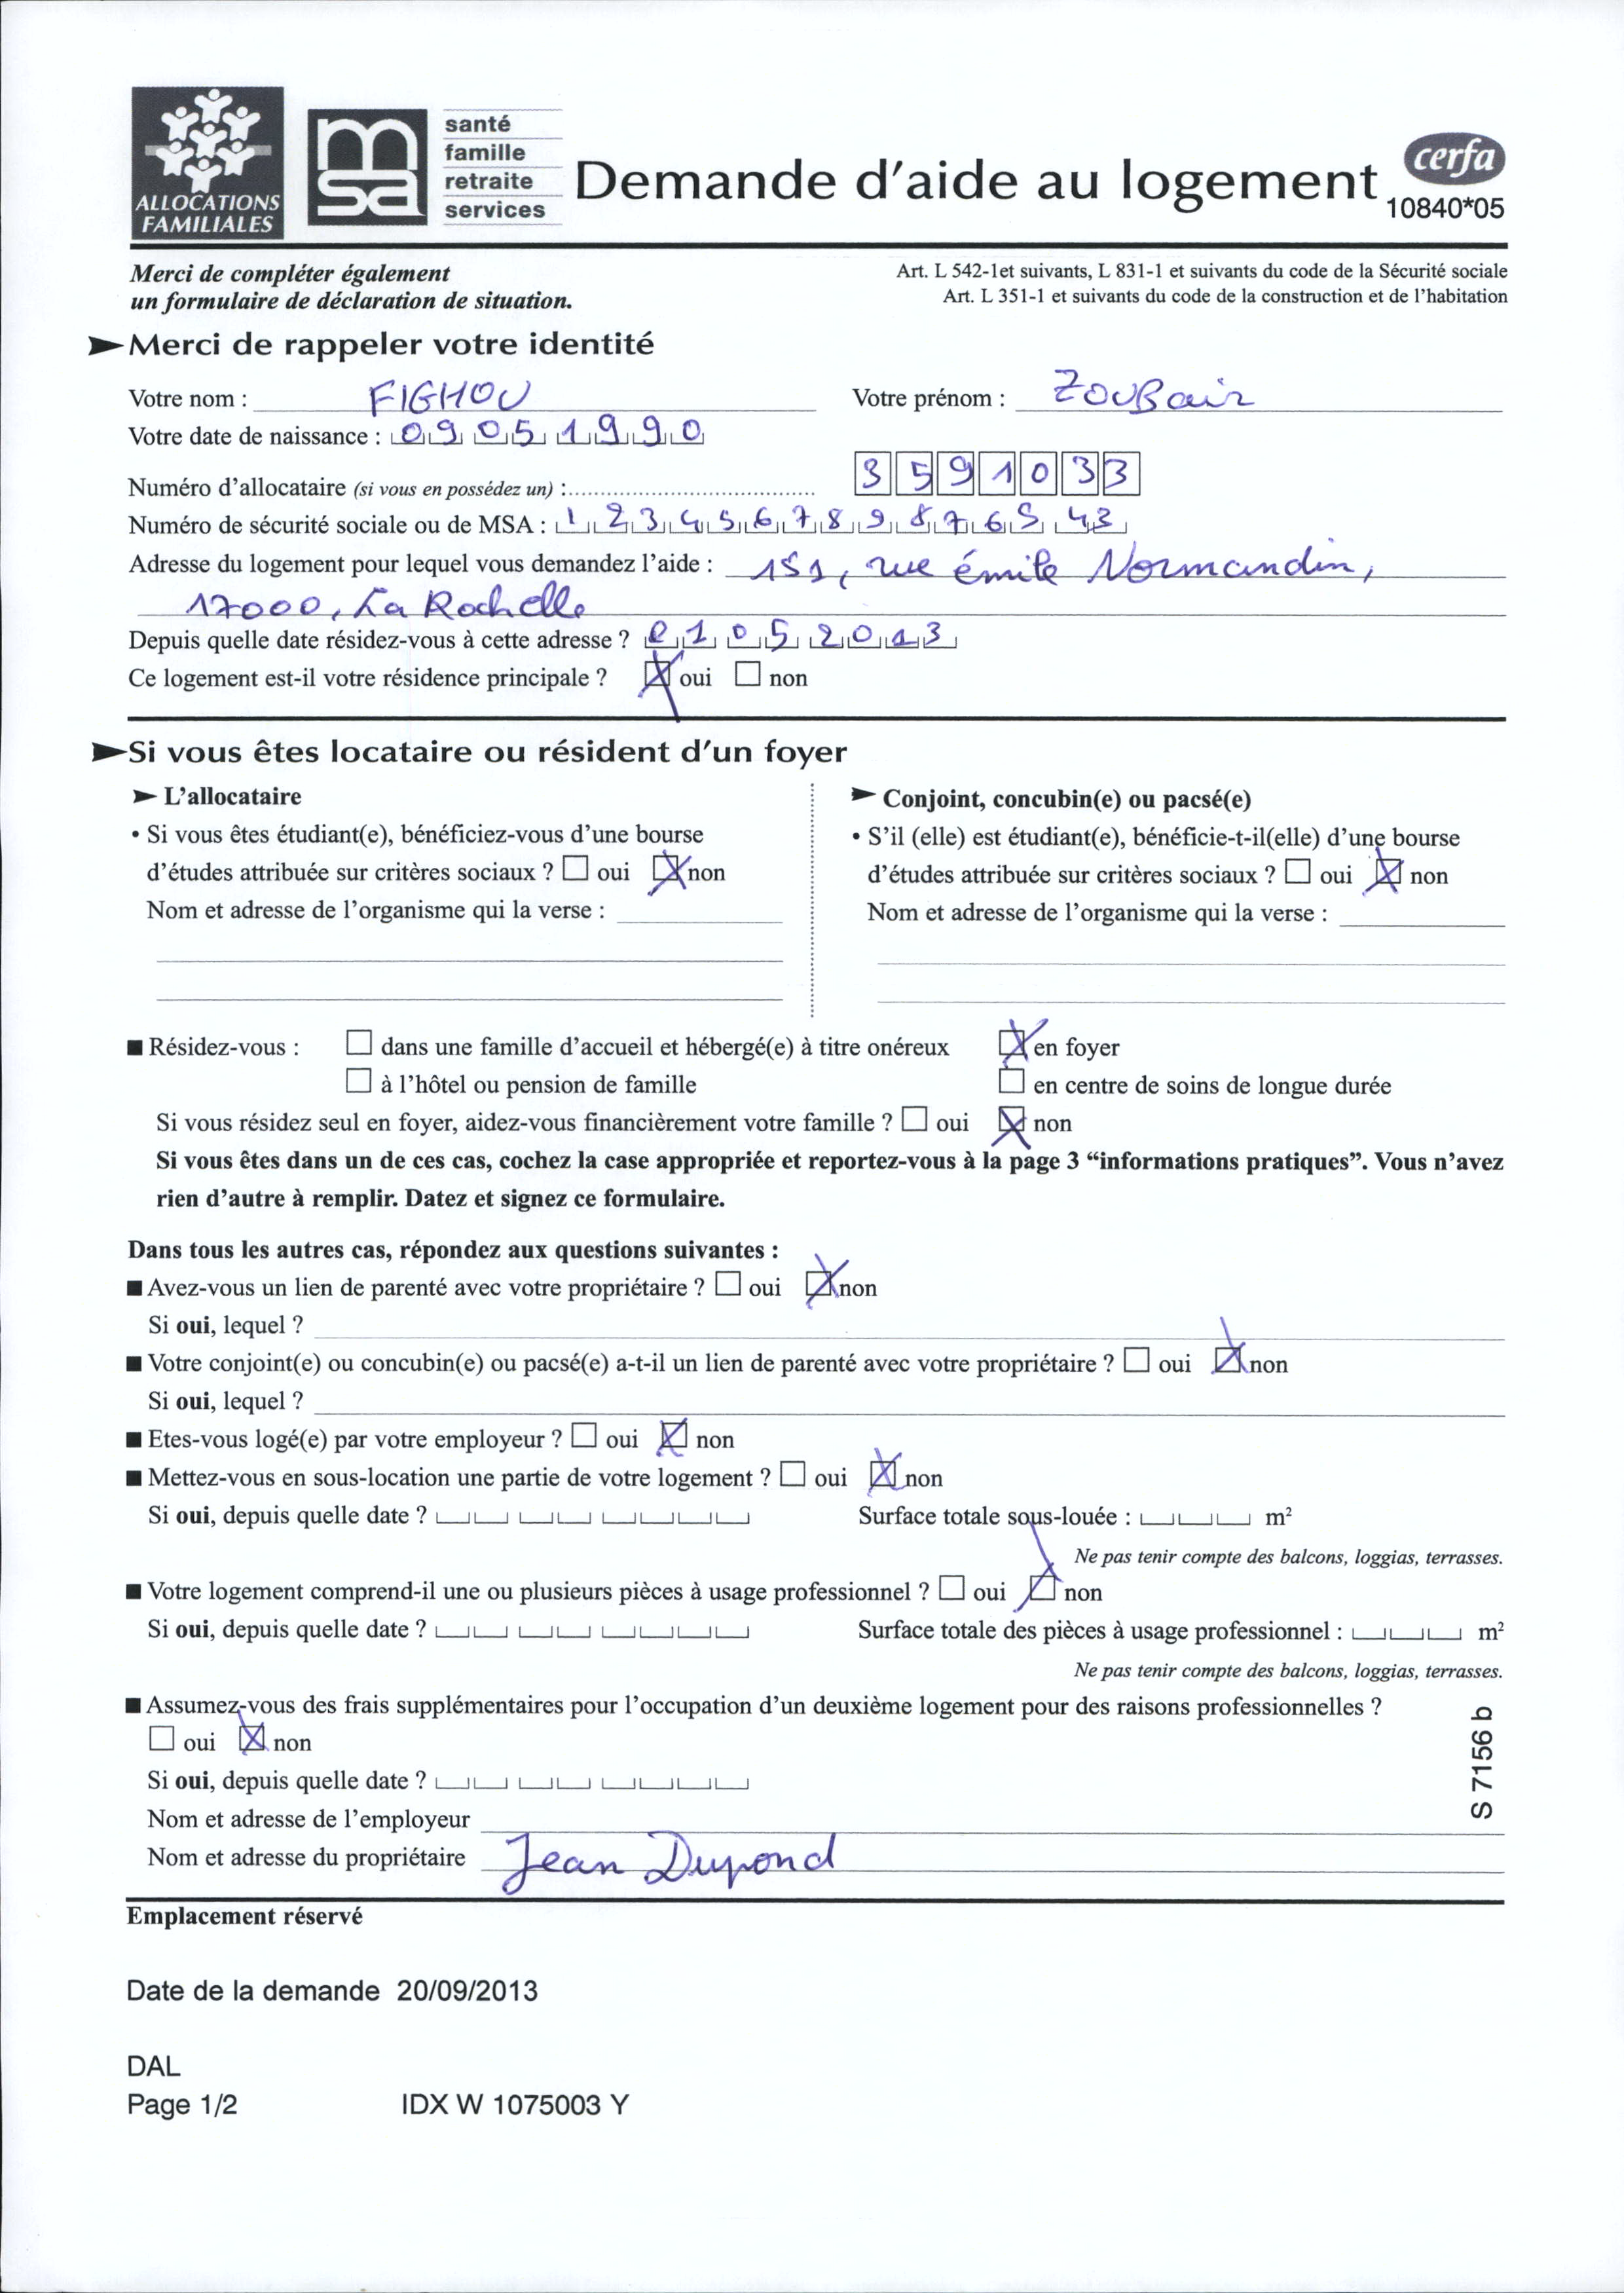 ALLOCATIONS
FAMILIALES
msa
santé
famille
retraite
services
Demande d'aide au logement
cerfa
10840*05
Merci de compléter également
un formulaire de déclaration de situation.
Art. L 542-1et suivants, L 831-1 et suivants du code de la Sécurité sociale
Art. L 351-1 et suivants du code de la construction et de l'habitation
Merci de rappeler votre identité
Votre nom : FIGHOU Votre prénom : ZOUBair
Votre date de naissance : 09 05 1990
Numéro d'allocataire (si vous en possédez un) : 3591033
Numéro de sécurité sociale ou de MSA : 1 2 3 4 5 6 7 8 9 8 7 6 5 4 3
Adresse du logement pour lequel vous demandez l'aide : 151, rue émile Normandin,
17000, La Rochelle
Depuis quelle date résidez-vous à cette adresse ? 01 05 2013
Ce logement est-il votre résidence principale ? ☒ oui ☐ non
Si vous êtes locataire ou résident d'un foyer
L'allocataire
• Si vous êtes étudiant(e), bénéficiez-vous d'une bourse
d'études attribuée sur critères sociaux ? ☐ oui ☒ non
Nom et adresse de l'organisme qui la verse :
Conjoint, concubin(e) ou pacsé(e)
• S'il (elle) est étudiant(e), bénéficie-t-il(elle) d'une bourse
d'études attribuée sur critères sociaux ? ☐ oui ☒ non
Nom et adresse de l'organisme qui la verse :
■ Résidez-vous : ☐ dans une famille d'accueil et hébergé(e) à titre onéreux ☒ en foyer
☐ à l'hôtel ou pension de famille ☐ en centre de soins de longue durée
Si vous résidez seul en foyer, aidez-vous financièrement votre famille ? ☐ oui ☒ non
Si vous êtes dans un de ces cas, cochez la case appropriée et reportez-vous à la page 3 “informations pratiques”. Vous n'avez
rien d'autre à remplir. Datez et signez ce formulaire.
Dans tous les autres cas, répondez aux questions suivantes :
■ Avez-vous un lien de parenté avec votre propriétaire ? ☐ oui ☒ non
Si oui, lequel ?
■ Votre conjoint(e) ou concubin(e) ou pacsé(e) a-t-il un lien de parenté avec votre propriétaire ? ☐ oui ☒ non
Si oui, lequel ?
■ Etes-vous logé(e) par votre employeur ? ☐ oui ☒ non
■ Mettez-vous en sous-location une partie de votre logement ? ☐ oui ☒ non
Si oui, depuis quelle date ? Surface totale sous-louée : m²
Ne pas tenir compte des balcons, loggias, terrasses.
■ Votre logement comprend-il une ou plusieurs pièces à usage professionnel ? ☐ oui ☒ non
Si oui, depuis quelle date ? Surface totale des pièces à usage professionnel : m²
Ne pas tenir compte des balcons, loggias, terrasses.
■ Assumez-vous des frais supplémentaires pour l'occupation d'un deuxième logement pour des raisons professionnelles ?
☐ oui ☒ non
Si oui, depuis quelle date ?
Nom et adresse de l'employeur
Nom et adresse du propriétaire Jean Dupond
S 7156 b
Emplacement réservé
Date de la demande 20/09/2013
DAL
Page 1/2 IDX W 1075003 Y